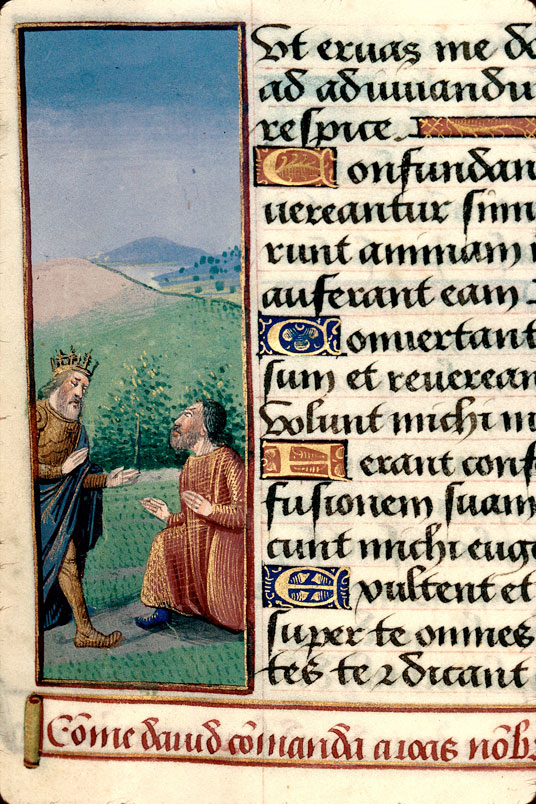 Ut eruas me do
ad adiuuandu
respice.
Confundan
uereantur simu
runt animam m
auferant eam
Conuertant
sum et reuerean
volunt michi m
Ferant conf
fusionem suam
cunt michi euge
Exultent et
super te omnes
tes te ⁊ dicant
Cōme dauid cōmanda a ioas nōb